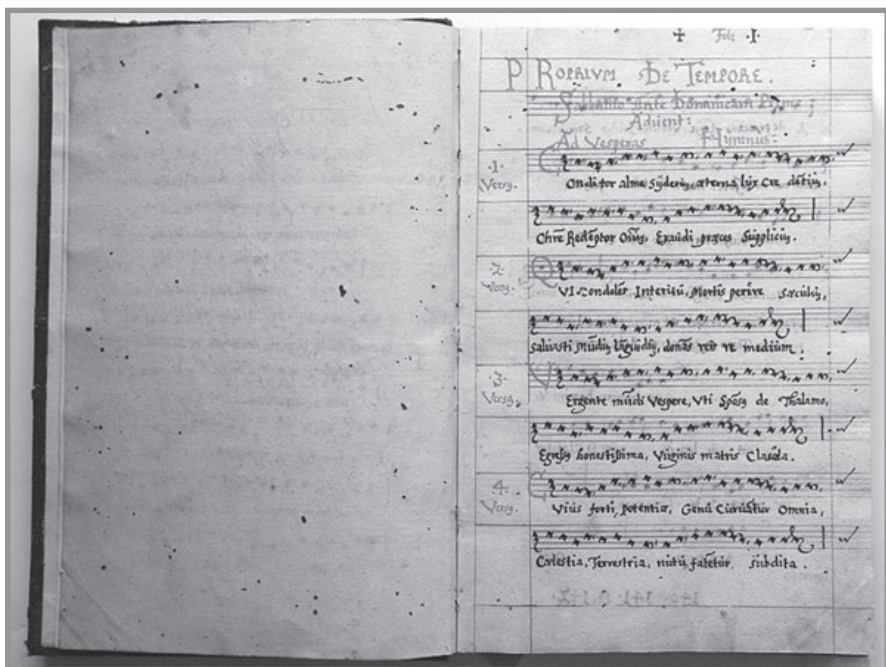 ✝ Fol: ·I·
PROPRIVM DE TEMPORE.
Sabbatho Ante Dominicam
Advent:
Ad Vesperas Hymnus:
·1· Versq.
Conditor alme Sÿderūm, æterna lux Cre dētiūm,
Chrē Redēptor Oīūm, Exaudi præces Supplicūm.
·2· Versq.
QVI Condolēs Interitū, Mortis perire Sæculūm,
Salvasti mūdūm lāguidūm, donās reis re medium.
·3· Versq.
VErgente mūdi Vespere, Vti Spōsūs de Thalamo,
Egressūs honestissima, Virginis matris Clasūla.
4. Versq.
CVius forti, potentiæ, Genū Curvātur Omnia,
Cœlestia, Terrestria, nutū fatētur subdita.